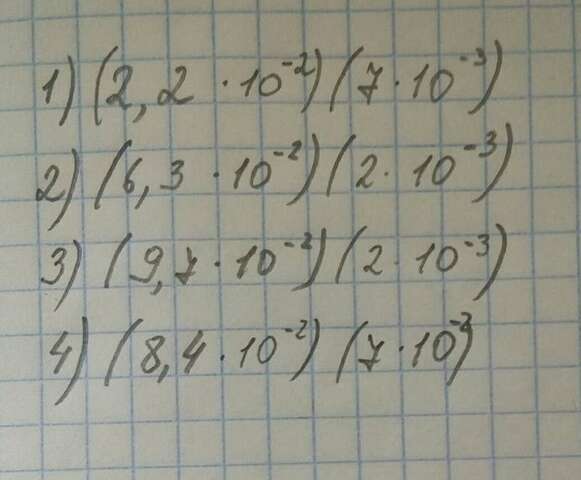 1) (2,2 · 10⁻²) (7 · 10⁻³)
2) (6,3 · 10⁻²) (2 · 10⁻³)
3) (9,7 · 10⁻²) (2 · 10⁻³)
4) (8,4 · 10⁻²) (7 · 10⁻³)